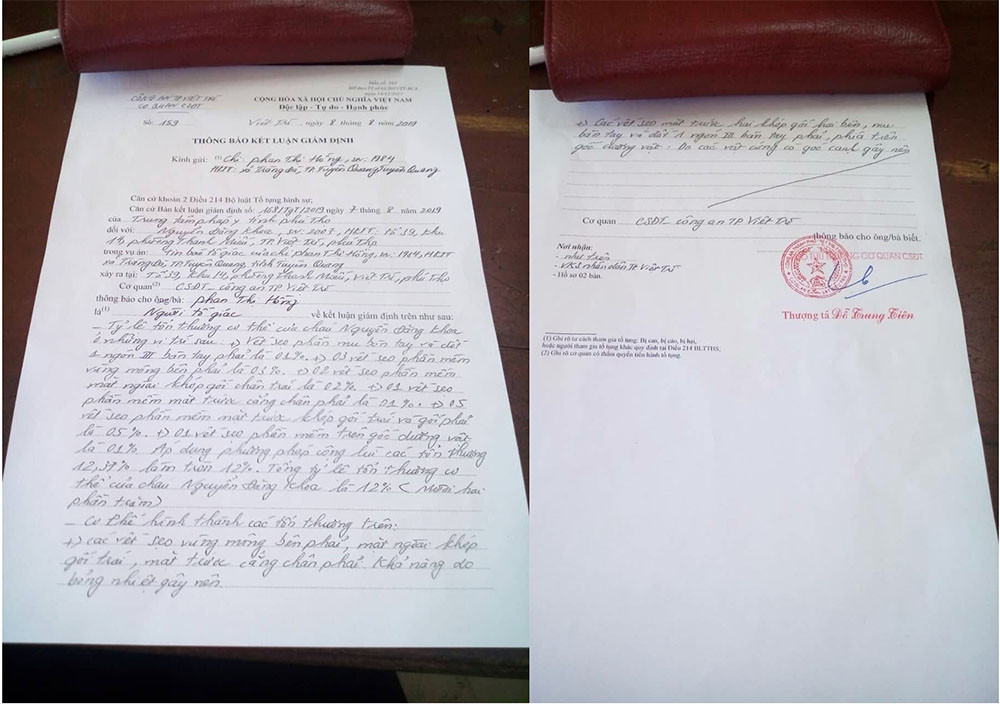 CÔNG AN TP VIỆT TRÌ
CƠ QUAN CSĐT
Số: 159
Mẫu số:
CỘNG HÒA XÃ HỘI CHỦ NGHĨA VIỆT NAM
Độc lập - Tự do - Hạnh phúc
Việt Trì, ngày 8 tháng 8 năm 2019
THÔNG BÁO KẾT LUẬN GIÁM ĐỊNH
Kính gửi: (1) Chị: Phan Thị Hồng, sn: 1984
HKTT: xã Tràng Đà, TP. Tuyên Quang, Tuyên Quang
Căn cứ khoản 2 Điều 214 Bộ luật Tố tụng hình sự;
Căn cứ Bản kết luận giám định số: 168/TgT/2019 ngày 7 tháng 8 năm 2019
của Trung tâm pháp y tỉnh Phú Thọ
đối với: Nguyễn Đăng Khoa, sn: 2007, HKTT: Tổ 39, khu
14, phường Thanh Miếu, TP. Việt Trì, Phú Thọ
trong vụ án: Tin báo tố giác của chị Phan Thị Hồng, sn: 1984, HKTT
xã Tràng Đà, TP. Tuyên Quang, tỉnh Tuyên Quang
xảy ra tại: Tổ 39, khu 14, phường Thanh Miếu, Việt Trì, Phú Thọ
Cơ quan(2) CSĐT - công an TP. Việt Trì
thông báo cho ông/bà: Phan Thị Hồng
là(1) Người tố giác về kết luận giám định trên như sau:
- Tỷ lệ tổn thương cơ thể của cháu Nguyễn Đăng Khoa
ở những vị trí sau: +) Vết sẹo phần mu bàn tay và đốt
1 ngón III bàn tay phải là 01%. +) 03 vết sẹo phần mềm
vùng mông bên phải là 03%. +) 02 vết sẹo phần mềm
mặt ngoài khớp gối chân trái là 02%. +) 01 vết sẹo
phần mềm mặt trước cẳng chân phải là 01%. +) 05
vết sẹo phần mềm mặt trước khớp gối trái và gối phải
là 05%. +) 01 vết sẹo phần mềm trên gốc dương vật
là 01%. Áp dụng phương pháp cộng lùi các tổn thương
12,39% làm tròn 12%. Tổng tỷ lệ tổn thương cơ
thể của cháu Nguyễn Đăng Khoa là 12% (Mười hai
phần trăm)
- Cơ chế hình thành các tổn thương trên:
+) Các vết sẹo vùng mông bên phải, mặt ngoài khớp
gối trái, mặt trước cẳng chân phải: Khả năng do
bỏng nhiệt gây nên.
+) Các vết sẹo mặt trước hai khớp gối hai bên, mu
bàn tay và đốt 1 ngón III bàn tay phải, phía trên
gốc dương vật: Do các vật cứng có góc cạnh gây nên
Cơ quan CSĐT - công an TP. Việt Trì
thông báo cho ông/bà biết.
Nơi nhận:
- như trên
- VKS nhân dân TP Việt Trì
- Hồ sơ 02 bản.
THỦ TRƯỞNG CƠ QUAN CSĐT
Thượng tá Đỗ Trung Tiến
(1) Ghi rõ tư cách tham gia tố tụng: Bị can, bị cáo, bị hại,
hoặc người tham gia tố tụng khác quy định tại Điều 214 BLTTHS;
(2) Ghi rõ cơ quan có thẩm quyền tiến hành tố tụng.